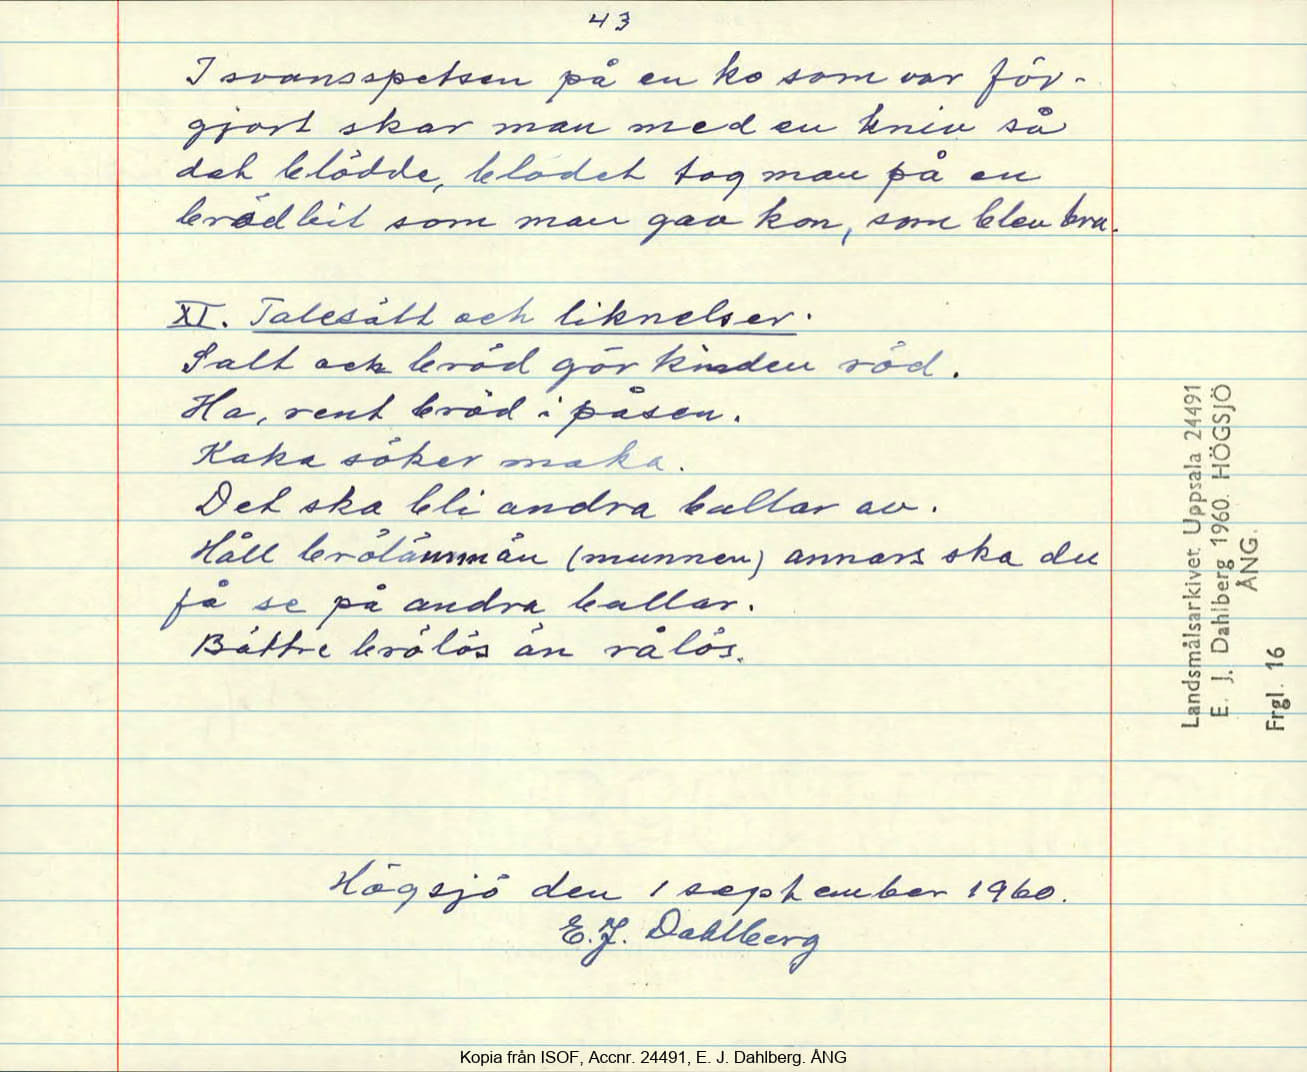 43
I svansspetsen på en ko som var för-
gjort skar man med en kniv så
det blödde, blodet tog man på en
brödbit som man gav kon, som blev bra.
XI. Talesätt och liknelser.
Salt och bröd gör kinden röd.
Ha, rent bröd i påsen.
Kaka söker maka.
Det ska bli andra bullar av.
Håll brölämmän (munnen) annars ska du
få se på andra bullar.
Bättre brölös än rålös.
Högsjö den 1 september 1960.
E.J. Dahlberg
Landsmålsarkivet, Uppsala 24491
E. J. Dahlberg 1960. HÖGSJÖ
ÅNG.
Frgl. 16
Kopia från ISOF, Accnr. 24491, E. J. Dahlberg. ÅNG